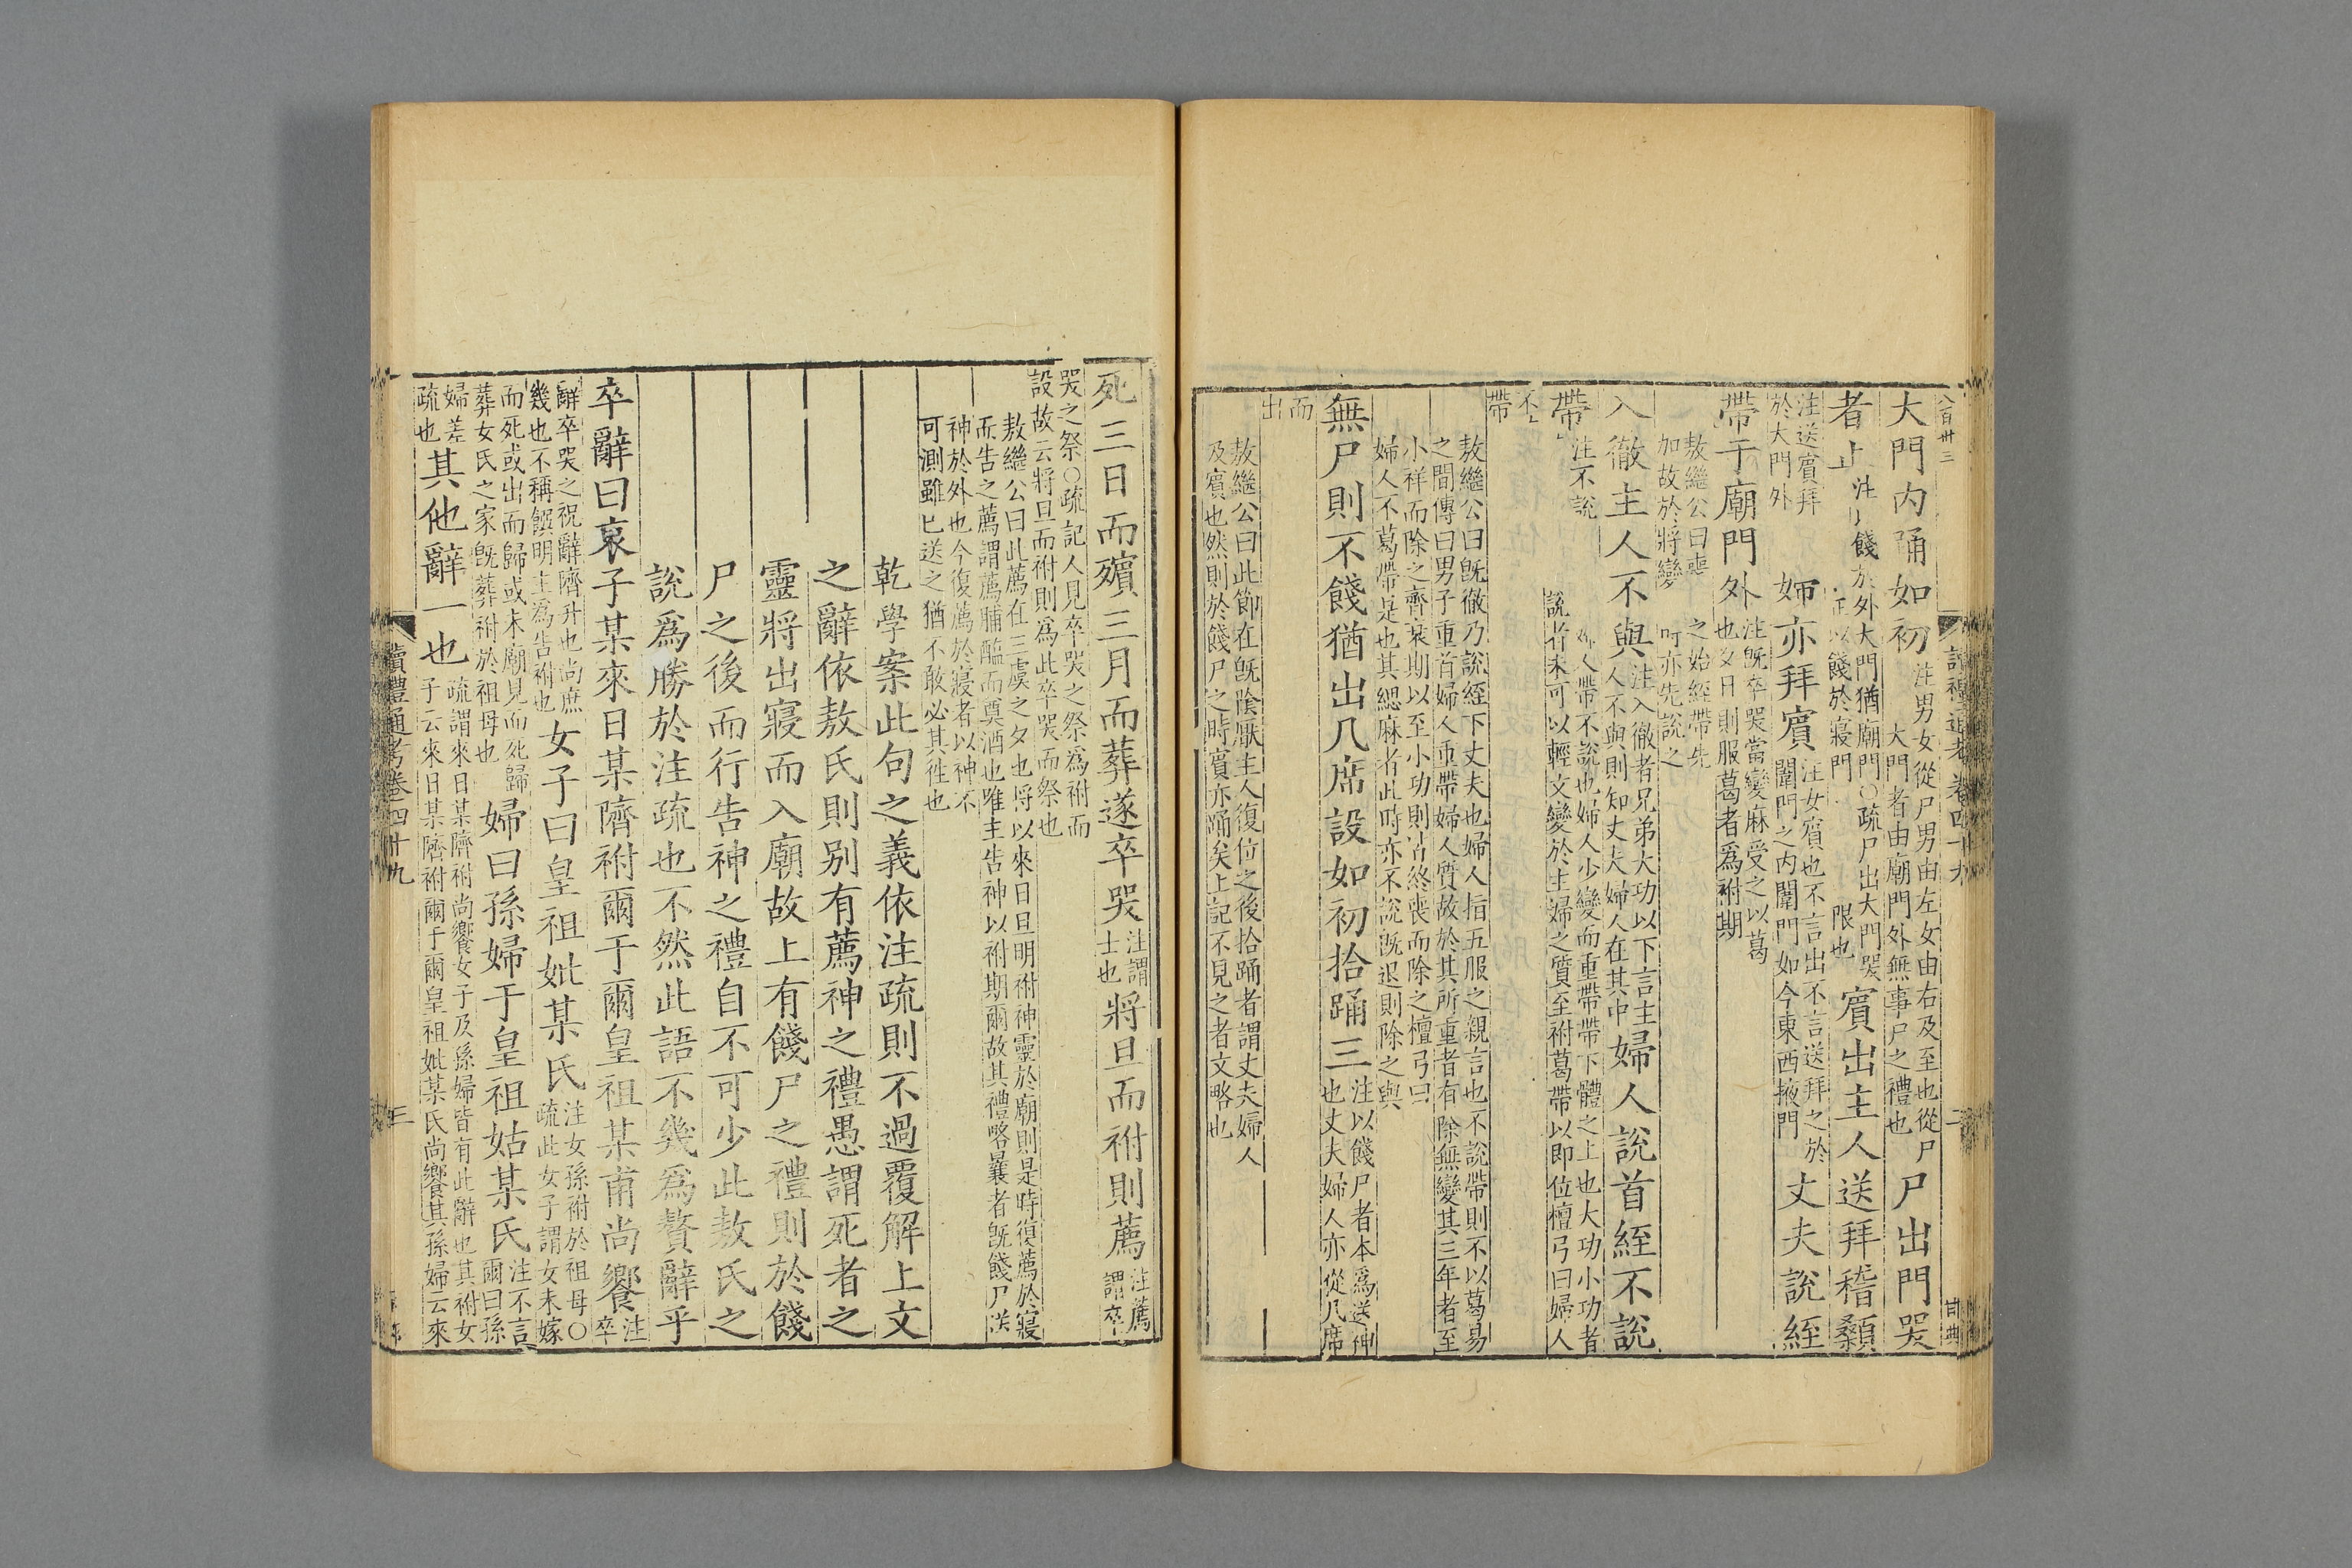 八百卅三
大門內踊如初注男女從尸男由左女由右及至也從尸大門者由廟門外無事尸之禮也尸出門哭
者止注餞於外大門猶廟門○疏尸出大門哭以餞於寢門限也賓出主人送拜稽顙
注送賓拜於大門外婦亦拜賓注女賓也不言出不言送拜之於闈門之內闈門如今東西掖門丈夫說絰
帶于廟門外注既卒哭當變麻受之以葛也夕日則服葛者爲祔期
敖繼公曰喪之始絰帶先加故於將變亦先說之
入徹主人不與注入徹者兄弟大功以下言主人不與則知丈夫婦人在其中婦人說首絰不說
帶注不說帶婦人帶不說也婦人少變而重帶帶下體之上也大功小功者說者未可以輕文變於主婦之質至祔葛帶以即位檀弓曰婦人
不帶
敖繼公曰既徹乃說絰下丈夫也婦人指五服之親言也不說帶則不以葛易
之間傳曰男子重首婦人重帶婦人質故於其所重者有除無變其三年者至
小祥而除之齊衰期以至小功則皆終喪而除之檀弓曰
婦人不葛帶是也其緦麻者此時亦不說既退則除之與
無尸則不餞猶出几席設如初拾踊三注以餞尸者本爲送神也丈夫婦人亦從几席
而出
敖繼公曰此節在既陰厭主人復位之後拾踊者謂丈夫婦人
及賓也然則於餞尸之時賓亦踊矣上記不見之者文略也
讀禮通考卷四十九
二
死三日而殯三月而葬遂卒哭注謂士也將旦而祔則薦注薦謂卒
哭之祭○疏記人見卒哭之祭爲祔而
設故云將旦而祔則爲此卒哭而祭也
敖繼公曰此薦在三虞之夕也將以來日旦明祔神靈於廟則是時復薦於寢
而告之薦謂薦脯醢而奠酒也唯主告神以祔期爾故其禮略曩者既餞尸送
神於外也今復薦於寢者以神不
可測雖已送之猶不敢必其往也
乾學案此句之義依注疏則不過覆解上文
之辭依敖氏則別有薦神之禮愚謂死者之
靈將出寢而入廟故上有餞尸之禮則於餞
尸之後而行告神之禮自不可少此敖氏之
說爲勝於注疏也不然此語不幾爲贅辭乎
卒辭曰哀子某來日某隮祔爾于爾皇祖某甫尚饗注卒
辭卒哭之祝辭隮升也尚庶幾也不稱饌明主爲告祔也女子曰皇祖妣某氏注女孫祔於祖母○疏此女子謂女未嫁
而死或出而歸或未廟見而死歸葬女氏之家既葬祔於祖母也婦曰孫婦于皇祖姑某氏注不言爾曰孫
婦差疏也其他辭一也疏謂來日某隮祔尚饗女子及孫婦皆有此辭也其祔女子云來日某隮祔爾于爾皇祖妣某氏尚饗其孫婦云來
讀禮通考卷四十九
三